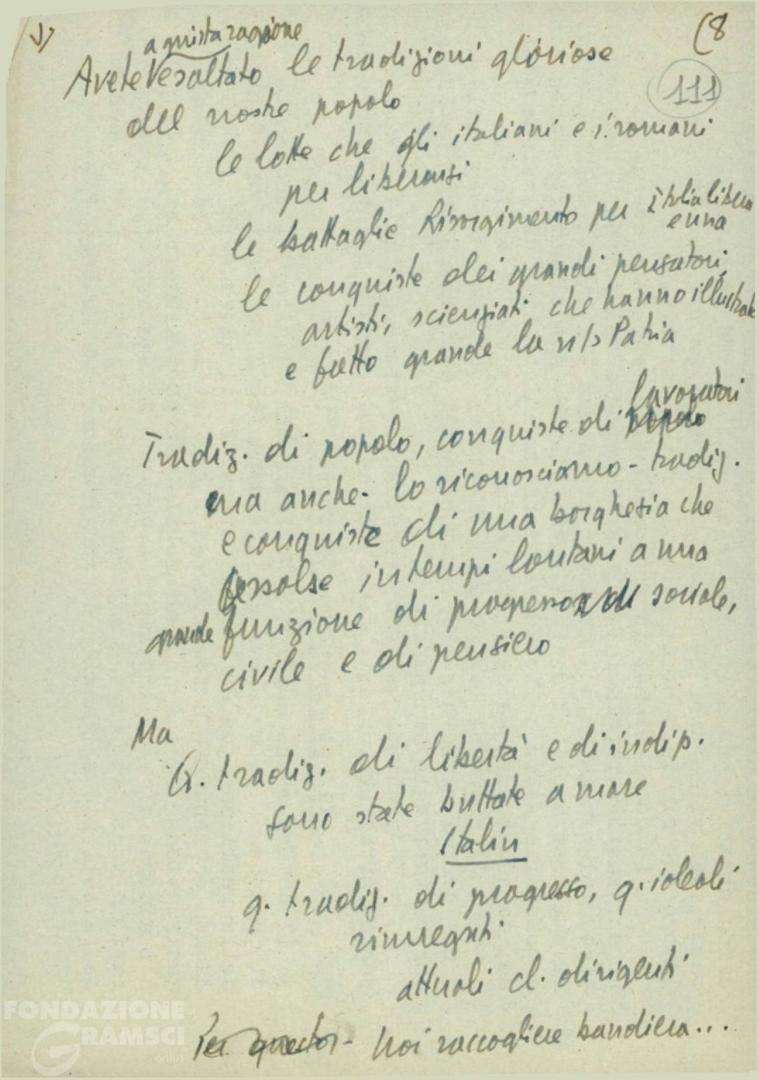 ↓) a giusta ragione (8
Avete esaltato le tradizioni gloriose
111
del nostro popolo
le lotte che gli italiani e i romani
per liberarsi
le battaglie Risorgimento per Italia libera
e una
le conquiste dei grandi pensatori,
artisti, scienziati che hanno illustrato
e fatto grande la n/s Patria
lavoratori
Tradiz. di popolo, conquiste di popolo
ma anche - lo riconosciamo - tradiz.
e conquiste di una borghesia che
assolse in tempi lontani a una
grande funzione di progresso sociale,
civile e di pensiero
Ma
Q. tradiz. di libertà e di indip.
sono state buttate a mare
Stalin
q. tradiz. di progresso, q. ideali
rinnegati
attuali cl. dirigenti
Per questo - noi raccogliere bandiera...
FONDAZIONE
GRAMSCI
onlus